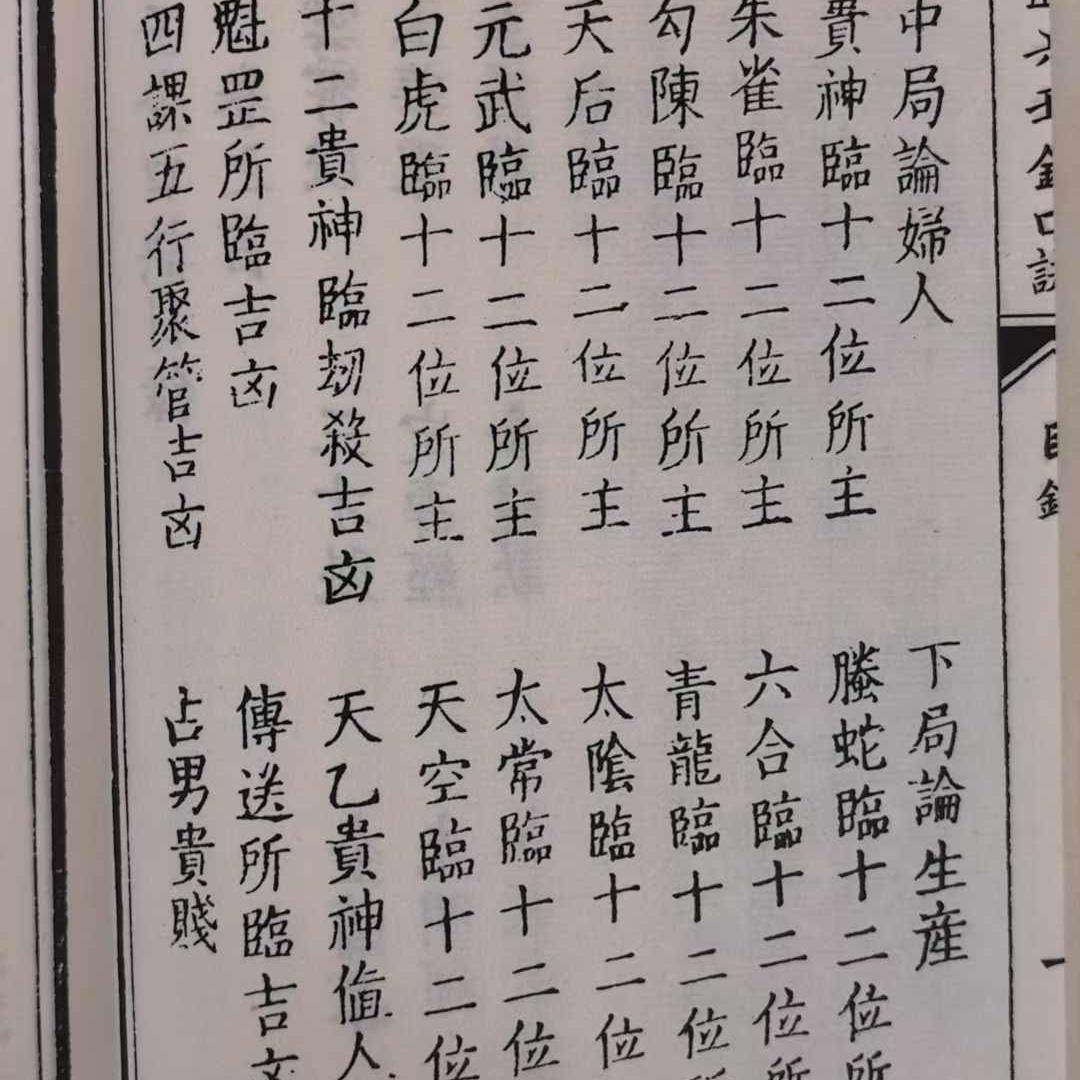 六壬金口訣
目錄
一
中局論婦人
下局論生産
貴神臨十二位所主
螣蛇臨十二位所
朱雀臨十二位所主
六合臨十二位所
勾陳臨十二位所主
青龍臨十二位所
天后臨十二位所主
太陰臨十二位
元武臨十二位所主
太常臨十二位
白虎臨十二位所主
天空臨十二位
十二貴神臨劫殺吉凶
天乙貴神値人
魁罡所臨吉凶
傳送所臨吉凶
四課五行聚管吉凶
占男貴賤